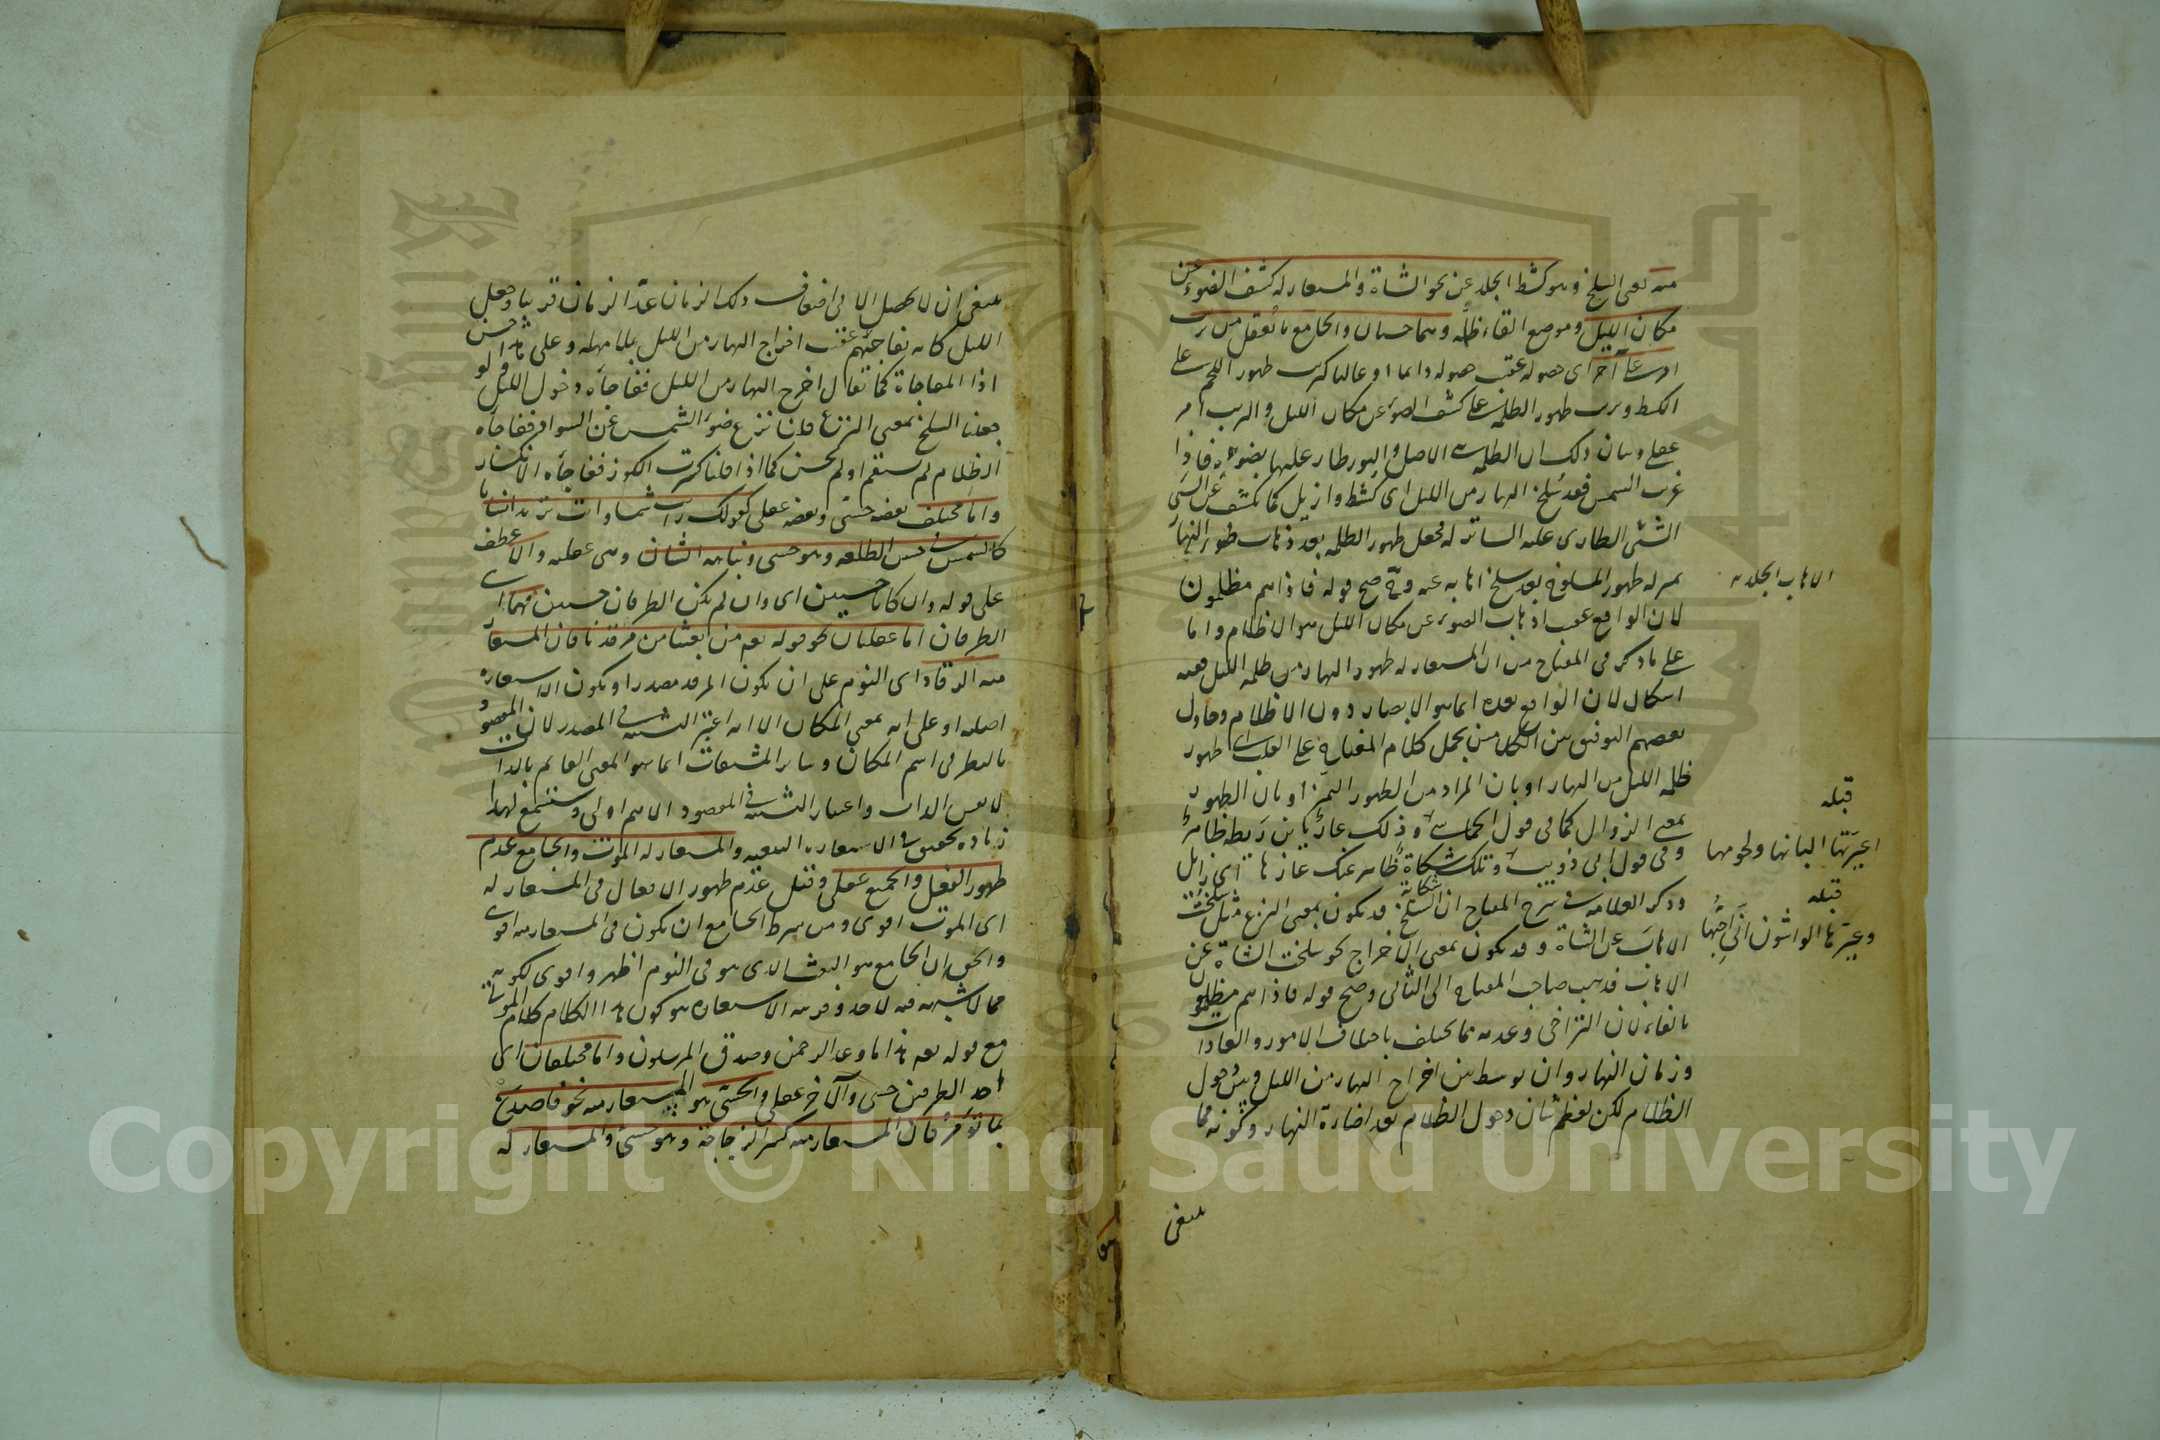 منه معنى السلخ وهو كشط الجلد عن نحو الشاة والمستعار له كشف الضوء عن
مكان الليل وموضع القاء ظله وهما حسيان والجامع ما يعقل من ترتب
امر على آخر اى حصوله عقب حصوله دايما او غالبا كترتب ظهور اللحم على
الكشط وترتب ظهور الظلمة على كشف الضوء عن مكان الليل والترتب امر
عقلى وبيان ذلك ان الظلمة هى الاصل والنور طار عليها بضوئه فاذا
غربت الشمس فقد سلخ النهار من الليل اى كشط وازيل كما يكشف عن الشى
الشئ الطارى عليه الساتر له فجعل ظهور الظلمة بعد ذهاب ضوء النهار
بمنزلة ظهور المسلوخ بعد سلخ اهابه عنه وح صح قوله فاذا هم مظلمون
لان الواقع عقيب اذهاب الضوء عن مكان الليل هو الاظلام واما
على ما ذكر فى المفتاح من ان المستعار له ظهور النهار من ظلمة الليل ففيه
اشكال لان الواقع بعده انما هو الابصار دون الاظلام وحاول
بعضهم التوفيق بين الكلامين بحمل كلام المفتاح على القلب اى ظهور
ظلمة الليل من النهار او بان المراد من الظهور التميز او بان الظهور
بمعنى الزوال كما فى قول الحماسى وذلك عار يا بن ريطة ظاهر
وفى قول ابى ذويب وتلك شكاة ظاهر عنك عارها اى زايل
وذكر العلامة فى شرح المفتاح ان السلخ قد يكون بمعنى النزع مثل سلخت
الاهاب عن الشاة وقد يكون بمعنى الاخراج نحو سلخت الشاة عن
الاهاب فذهب صاحب المفتاح الى الثانى وصح قوله فاذا هم مظلمون
بالفاء لان التراخى وعدمه مما يختلف باختلاف الامور والعادات
وزمان النهار وان توسط بين اخراج النهار من الليل وبين دخول
الظلام لكن لعظم شان دخول الظلام بعد اضاءة النهار وكونه مما
ينبغى
الاهاب الجلد
قبله
اعيرتنا البانها ولحومها
قبله
وعيرها الواشون انى احبها
ينبغى ان لا يحصل الا فى اضعاف ذلك الزمان عد الزمان قريبا وجعل
الليل كانه يفاجئهم عقيب اخراج النهار من الليل بلا مهلة وعلى هذا حسن
اذا المفاجاة كما تقال اخرج النهار من الليل ففاجأه دخول الليل ولو
جعلنا السلخ بمعنى النزع وقلنا نزع ضوء الشمس عن الهواء ففاجأه
الظلام لم يستقم او لم يحسن كما اذا قلنا كسرت الكوز ففاجأه الانكسار
واما مختلف بعضه حسى وبعضه عقلى كقولك رأيت شمسا وانت تريد انسانا
كالشمس فى حسن الطلعة وهو حسى ونباهة الشان وهى عقلية والا عطف
على قوله وان كانا حسيين اى وان لم يكن الطرفان حسيين فهما اى
الطرفان اما عقليان نحو قوله تعم من بعثنا من مرقدنا فان المستعار
منه الرقاد اى النوم على ان يكون المرقد مصدرا ويكون الاستعارة
اصلية او على انه بمعنى المكان الا انه اعتبر التشبيه فى المصدر لان المقصود
بالنظر فى اسم المكان وساير المشتقات انما هو المعنى القايم بالذات
لا نفس الذات واعتبار التشبيه فى المقصود الاهم اولى وستسمع لهذا
زيادة تحقيق فى الاستعارة التبعية والمستعار له الموت والجامع عدم
ظهور الفعل والجميع عقلى وقيل عدم ظهور الافعال فى المستعار له
اى الموت اقوى ومن شرط الجامع ان يكون فى المستعار منه اقوى
والحق ان الجامع هو البعث الذى هو فى النوم اظهر واقوى لكونه
مما لا شبهة فيه لاحد وقرينة الاستعارة هو كون هذا الكلام كلام الموتى
مع قوله تعم هذا ما وعد الرحمن وصدق المرسلون واما مختلفان اى
احد الطرفين حسى والآخر عقلى والحسى هو المستعار منه نحو فاصدع
بما تؤمر فان المستعار منه كسر الزجاجة وهو حسى والمستعار له